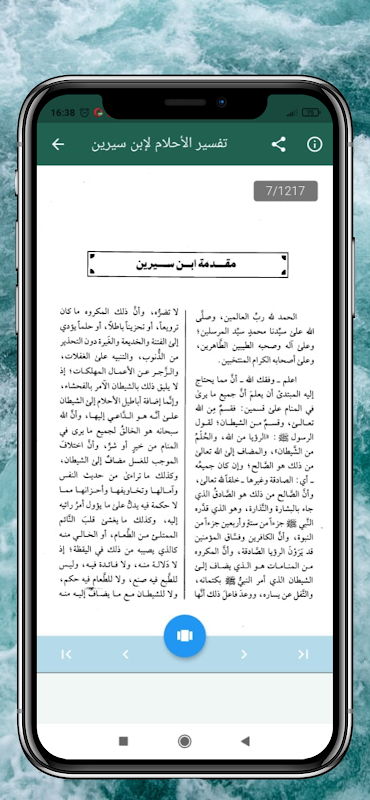 16:38
تفسير الأحلام لإبن سيرين
7/1217
مقـدمة ابـن سـيرين
الحمد لله ربِّ العالمين، وصلَّى
الله على سيِّدنا محمدٍ سيِّد المرسلين؛
وعلى آله وصحبه الطيبين الطَّاهرين،
وعلى أصحابه الكرام المنتخبين.
اعلم ـ وفقك الله ـ أنَّ مما يحتاج
إليه المبتدىٔ أن يعلمَ أنَّ جميع ما يرىٰ
في المنام على قسمين: فقسمٌ مِن الله
تعالـى، وقسمٌ مـن الشيطان؛ لقول
الرسول ﷺ: «الرؤيا من الله، والحُلْمُ
من الشَّيطان»، والمضاف إلى الله تعالىٰ
من ذلك هو الصَّالح؛ وإن كان جميعُه
ـ أي: الصادقة وغيرها ـ خلقاً لله تعالى،
وأنَّ الصَّالح من ذلك هو الصَّادقُ الذي
جاء بالبشارة والنَّذارة، وهو الذي قدَّره
النَّبيُّ ﷺ جزءاً من ستةٍ وأربعين جزءاً من
النبوة، وأنَّ الكافرين وفسَّاق المؤمنين
قد يَرَوْنَ الرؤيا الصَّادقة، وأنَّ المكروه
مـن المنامـات هـو الـذي يضـاف إلـىٰ
الشيطان الذي أمر النبيُّ ﷺ بكتمانه،
والتَّفل عن يساره، ووعدَ فاعلَ ذلك أنَّها
لا تضرُّه، وأنَّ ذلك المكروه ما كان
ترويعاً، أو تحزيناً باطلاً، أو حلماً يؤدي
إلى الفتنة والخديعة والغَيرة دون التحذير
من الذُّنوب، والتنبيه على الغفلات،
والزَّجـر عـن الأعمـال المهلكـات؛ إذ
لا يليق ذلك بالشيطان الآمر بالفحشاء،
وإنَّما إضافة أباطيل الأحلام إلى الشيطان
علـى أنَّـه هـو الـدَّاعي إليهـا، وأنَّ الله
سبحانه هو الخالقُ لجميع ما يرى في
المنام من خيرٍ أو شرٍّ، وأنَّ اختلافَ
الموجب للغسل مضافٌ إلىٰ الشيطان،
وكذلك ما تراءىٰ من حديث النفس
وآمـالهـا وتخـاويفهـا وأحـزانهـا ممـا
لا حكمة فيه يدلُّ علىٰ ما يؤول أمرُ رائيه
إليه، وكذلك ما يغشىٰ قلبَ النَّائم
الممتلىٔ مـن الطَّعـام، أو الخالـي منـه
كالذي يصيبه من ذلك في اليقظة؛ إذ
لا دَلالـة منـه، ولا فـائـدة فيـه، وليـس
للطَّبع فيه صنع، ولا للطَّعام فيه حكم،
ولا للشيطـان مـع مـا يضـاف إليـه منـه